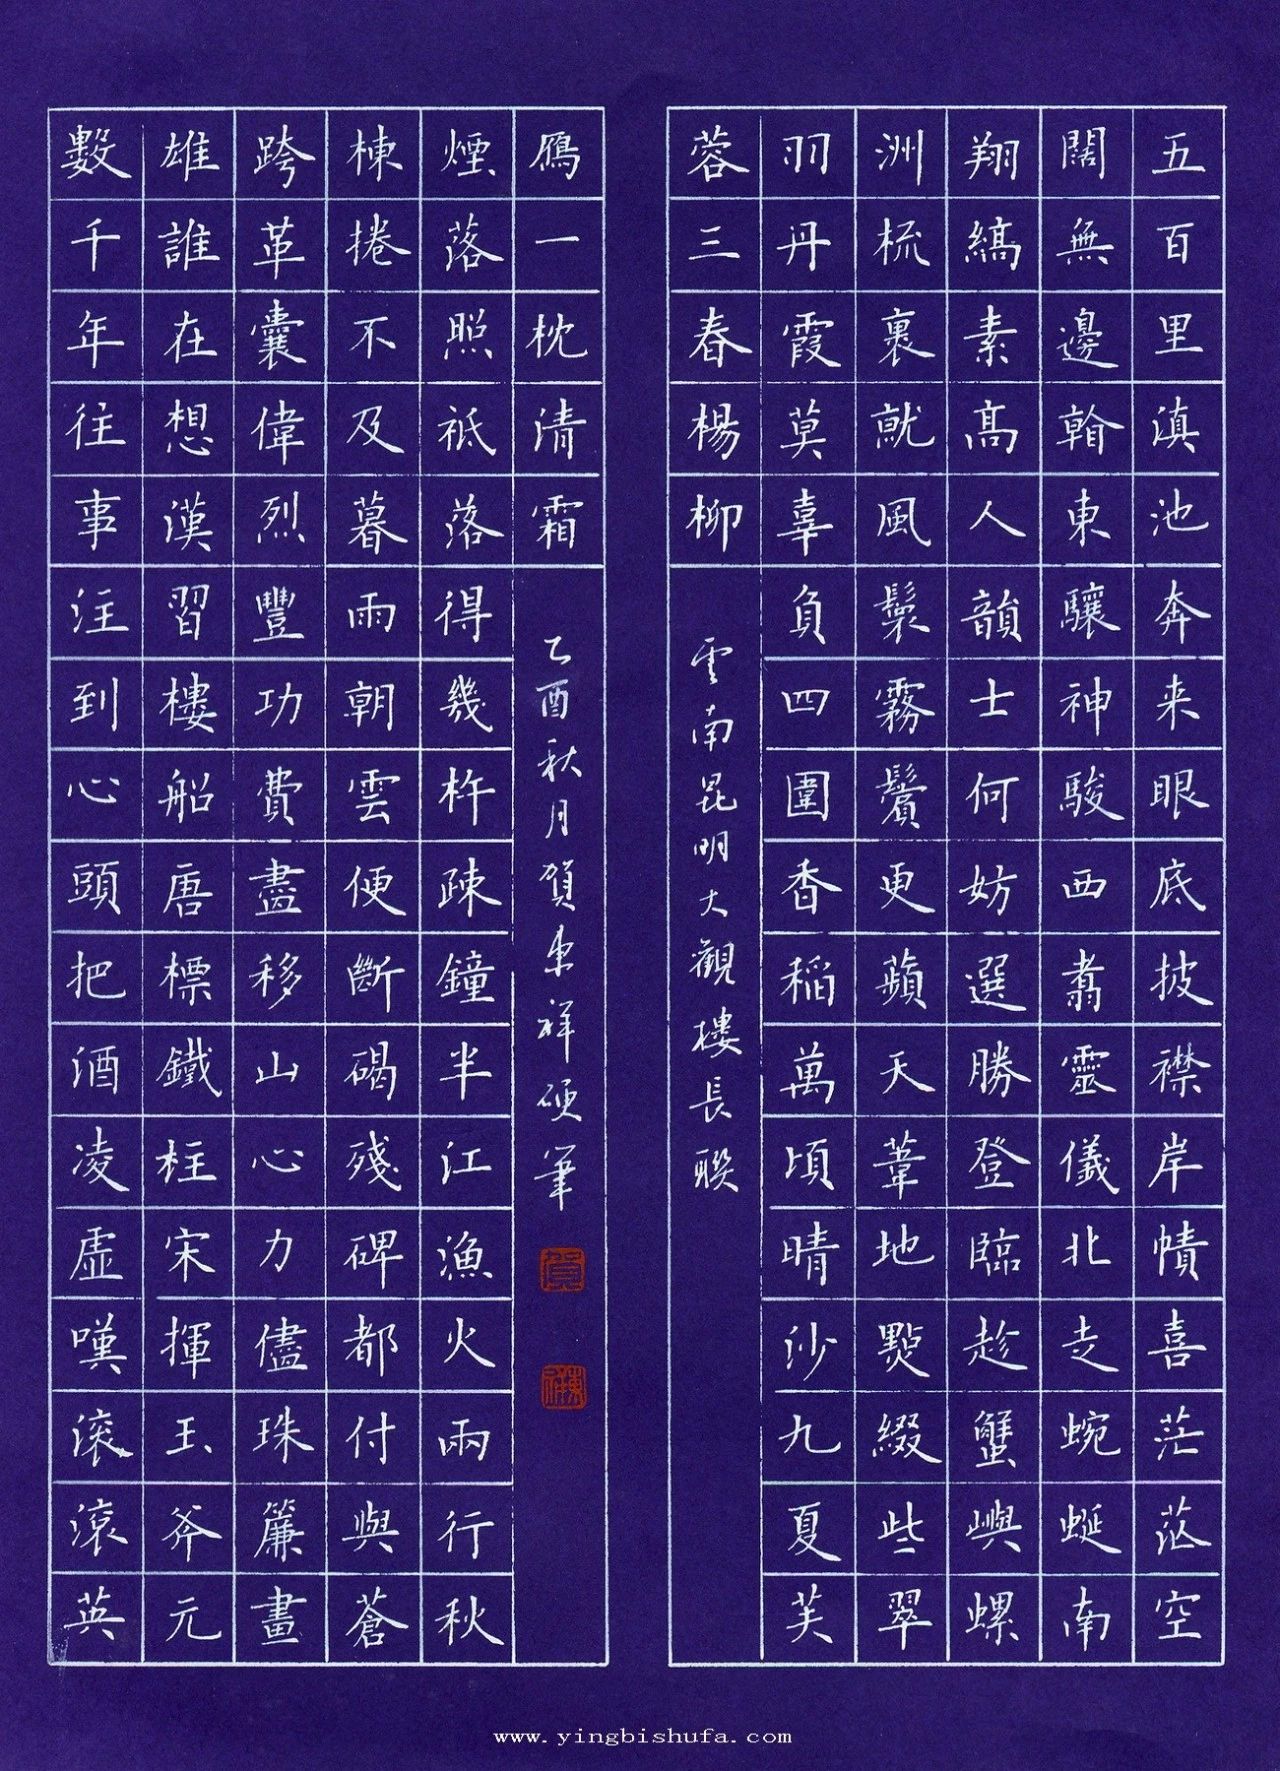 五百里滇池奔来眼底披襟岸幘喜茫茫空
闊無邊看東驤神駿西翥靈儀北走蜿蜒南
翔縞素高人韻士何妨選勝登臨趁蟹嶼螺
洲梳裹就風鬟霧鬢更蘋天葦地點綴些翠
羽丹霞莫辜負四圍香稻萬頃晴沙九夏芙
蓉三春楊柳
雲南昆明大觀樓長聯
數千年往事注到心頭把酒凌虛嘆滚滚英
雄誰在想漢習樓船唐標鐵柱宋揮玉斧元
跨革囊偉烈豐功費盡移山心力儘珠簾畫
棟捲不及暮雨朝雲便斷碣殘碑都付與蒼
煙落照祗落得幾杵疎鐘半江漁火兩行秋
鴈一枕清霜
乙酉秋月賀東祥硬筆
www.yingbishufa.com